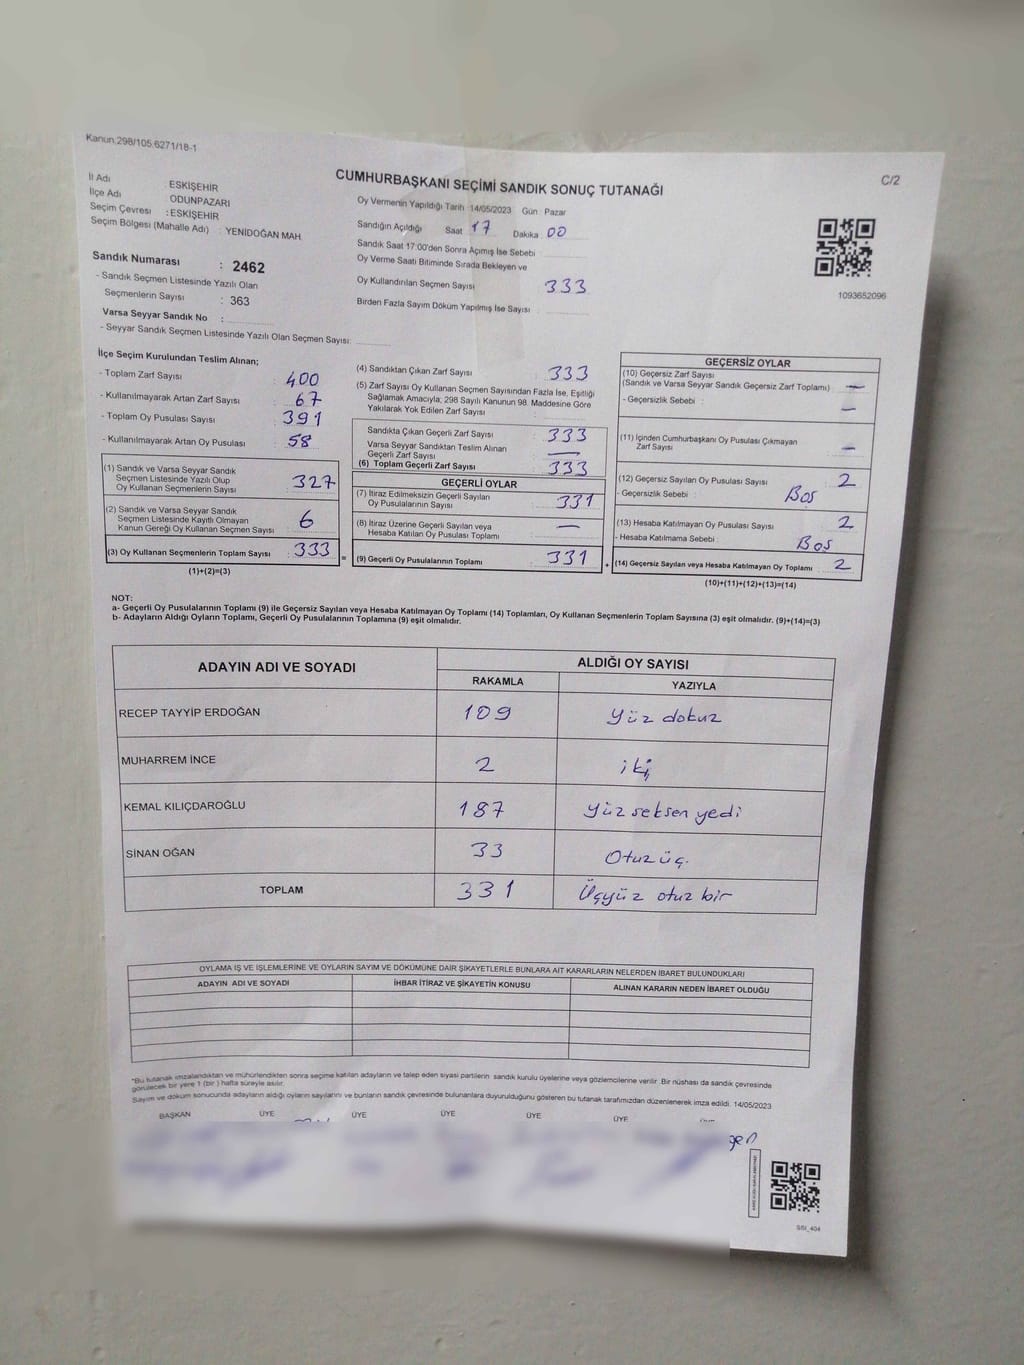 Kanun.298/105.6271/18-1
C/2
CUMHURBAŞKANI SEÇİMİ SANDIK SONUÇ TUTANAĞI
İl Adı : ESKİŞEHİR
İlçe Adı ODUNPAZARI
Seçim Çevresi : ESKİŞEHİR
Seçim Bölgesi (Mahalle Adı) : YENİDOĞAN MAH.
Sandık Numarası : 2462
- Sandık Seçmen Listesinde Yazılı Olan
Seçmenlerin Sayısı : 363
Varsa Seyyar Sandık No :
- Seyyar Sandık Seçmen Listesinde Yazılı Olan Seçmen Sayısı:
Oy Vermenin Yapıldığı Tarih 14/05/2023 Gün Pazar
Sandığın Açıldığı Saat 17 Dakika 00
Sandık Saat 17:00'den Sonra Açımış İse Sebebi
Oy Verme Saati Bitiminde Sırada Bekleyen ve
Oy Kullandırılan Seçmen Sayısı 333
Birden Fazla Sayım Döküm Yapılmış İse Sayısı
1093652096
İlçe Seçim Kurulundan Teslim Alınan;
- Toplam Zarf Sayısı : 400
- Kullanılmayarak Artan Zarf Sayısı : 67
- Toplam Oy Pusulası Sayısı : 391
- Kullanılmayarak Artan Oy Pusulası : 58
(1) Sandık ve Varsa Seyyar Sandık
Seçmen Listesinde Yazılı Olup
Oy Kullanan Seçmenlerin Sayısı : 327
(2) Sandık ve Varsa Seyyar Sandık
Seçmen Listesinde Kayıtlı Olmayan
Kanun Gereği Oy Kullanan Seçmen Sayısı : 6
(3) Oy Kullanan Seçmenlerin Toplam Sayısı : 333
(1)+(2)=(3)
(4) Sandıktan Çıkan Zarf Sayısı : 333
(5) Zarf Sayısı Oy Kullanan Seçmen Sayısından Fazla İse, Eşitliği
Sağlamak Amacıyla; 298 Sayılı Kanunun 98. Maddesine Göre
Yakılarak Yok Edilen Zarf Sayısı
Sandıkta Çıkan Geçerli Zarf Sayısı : 333
Varsa Seyyar Sandıktan Teslim Alınan
Geçerli Zarf Sayısı : —
(6) Toplam Geçerli Zarf Sayısı : 333
GEÇERLİ OYLAR
(7) İtiraz Edilmeksizin Geçerli Sayılan
Oy Pusulalarının Sayısı : 331
(8) İtiraz Üzerine Geçerli Sayılan veya
Hesaba Katılan Oy Pusulası Toplamı : —
= (9) Geçerli Oy Pusulalarının Toplamı : 331
GEÇERSİZ OYLAR
(10) Geçersiz Zarf Sayısı
(Sandık ve Varsa Seyyar Sandık Geçersiz Zarf Toplamı) : —
- Geçersizlik Sebebi : —
(11) İçinden Cumhurbaşkanı Oy Pusulası Çıkmayan
Zarf Sayısı : —
(12) Geçersiz Sayılan Oy Pusulası Sayısı : 2
- Geçersizlik Sebebi : Boş
(13) Hesaba Katılmayan Oy Pusulası Sayısı : 2
- Hesaba Katılmama Sebebi : Boş
+ (14) Geçersiz Sayılan veya Hesaba Katılmayan Oy Toplamı : 2
(10)+(11)+(12)+(13)=(14)
NOT:
a- Geçerli Oy Pusulalarının Toplamı (9) ile Geçersiz Sayılan veya Hesaba Katılmayan Oy Toplamı (14) Toplamları, Oy Kullanan Seçmenlerin Toplam Sayısına (3) eşit olmalıdır. (9)+(14)=(3)
b- Adayların Aldığı Oyların Toplamı, Geçerli Oy Pusulalarının Toplamına (9) eşit olmalıdır.
ADAYIN ADI VE SOYADI ALDIĞI OY SAYISI
RAKAMLA YAZIYLA
RECEP TAYYİP ERDOĞAN 109 Yüz dokuz
MUHARREM İNCE 2 iki
KEMAL KILIÇDAROĞLU 187 Yüz seksen yedi
SİNAN OĞAN 33 Otuz üç.
TOPLAM 331 Üçyüz otuz bir
OYLAMA İŞ VE İŞLEMLERİNE VE OYLARIN SAYIM VE DÖKÜMÜNE DAİR ŞİKAYETLERLE BUNLARA AİT KARARLARIN NELERDEN İBARET BULUNDUKLARI
ADAYIN ADI VE SOYADI İHBAR İTİRAZ VE ŞİKAYETİN KONUSU ALINAN KARARIN NEDEN İBARET OLDUĞU
*Bu tutanak imzalandıktan ve mühürlendikten sonra seçime katılan adayların ve talep eden siyasi partilerin sandık kurulu üyelerine veya gözlemcilerine verilir. Bir nüshası da sandık çevresinde
görülecek bir yere 1 (bir ) hafta süreyle asılır.
Sayım ve döküm sonucunda adayların aldığı oyların sayılarını ve bunların sandık çevresinde bulunanlara duyurulduğunu gösteren bu tutanak tarafımızdan düzenlenerek imza edildi. 14/05/2023
BAŞKAN ÜYE ÜYE ÜYE ÜYE ÜYE
SSI_404